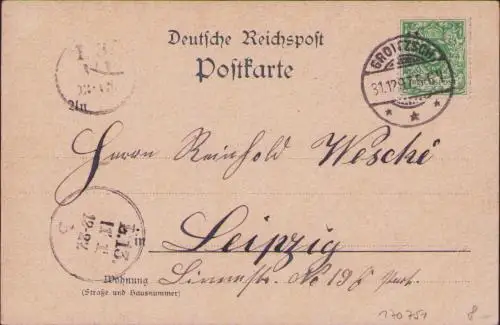 Deutsche Reichspost
Postkarte
GROITZSCH
31.12.97. 5-6.N.
An
Herrn Reinhold Wesche
L. 13.
II
12-2N.
in
Leipzig
Wohnung
(Straße und Hausnummer)
No 19
Part.
170751
8 –